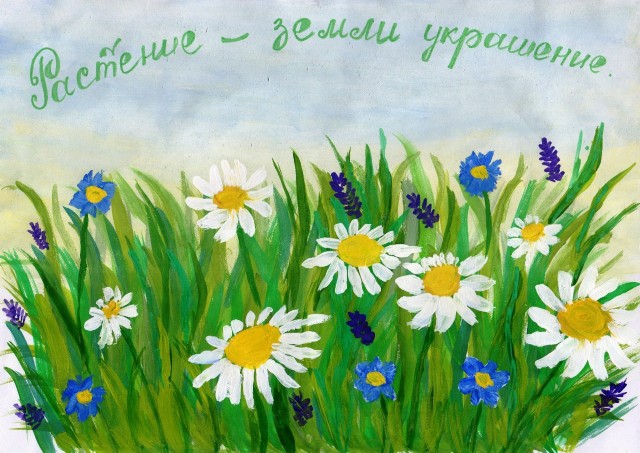 Растение – земли украшение.